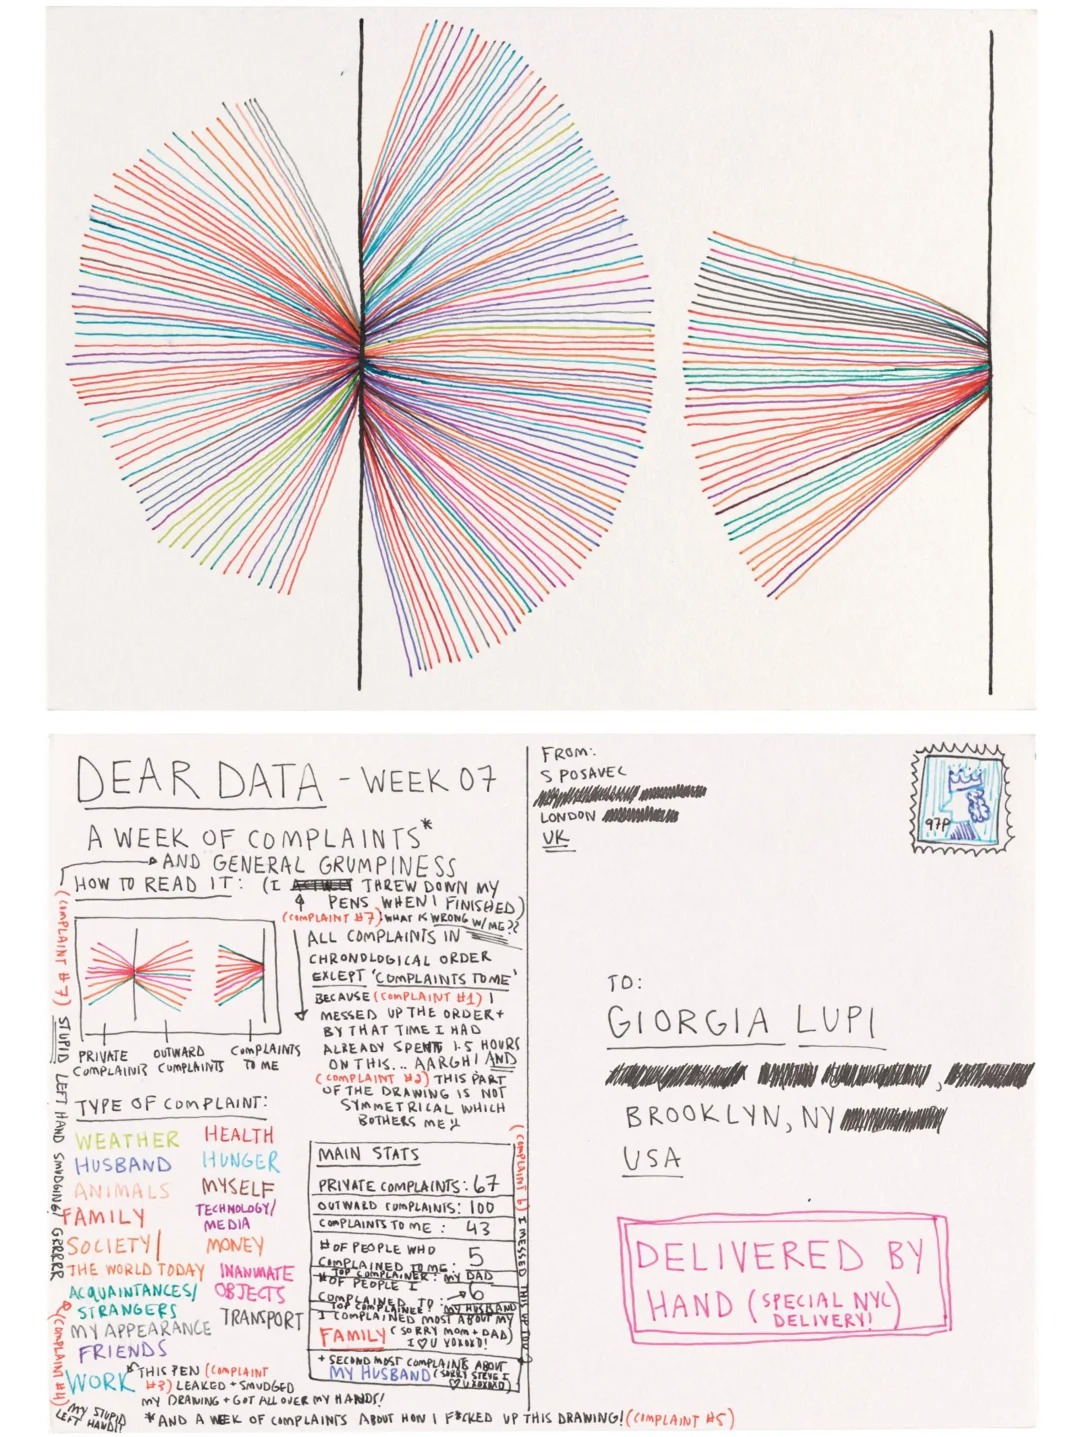 DEAR DATA - WEEK 07
A WEEK OF COMPLAINTS*
AND GENERAL GRUMPINESS
HOW TO READ IT: (I THREW DOWN MY
PENS WHEN I FINISHED)
(COMPLAINT #7) WHAT IS WRONG W/ME??
ALL COMPLAINTS IN
CHRONOLOGICAL ORDER
EXCEPT 'COMPLAINTS TO ME'
BECAUSE (COMPLAINT #1) I
MESSED UP THE ORDER +
BY THAT TIME I HAD
ALREADY SPENT 1.5 HOURS
ON THIS... AARGH! AND
(COMPLAINT #2) THIS PART
OF THE DRAWING IS NOT
SYMMETRICAL WHICH
BOTHERS ME!!
PRIVATE COMPLAINTS
OUTWARD COMPLAINTS
COMPLAINTS TO ME
TYPE OF COMPLAINT:
WEATHER
HUSBAND
ANIMALS
FAMILY
SOCIETY/
THE WORLD TODAY
ACQUAINTANCES/
STRANGERS
MY APPEARANCE
FRIENDS
WORK
HEALTH
HUNGER
MYSELF
TECHNOLOGY/
MEDIA
MONEY
INANIMATE
OBJECTS
TRANSPORT
THIS PEN (COMPLAINT
#3) LEAKED + SMUDGED
MY DRAWING + GOT ALL OVER MY HANDS!
*AND A WEEK OF COMPLAINTS ABOUT HOW I F*CKED UP THIS DRAWING! (COMPLAINT #5)
(COMPLAINT #7) STUPID LEFT HAND SMUDGING! GRRRRR
(COMPLAINT #4)
MY STUPID
LEFT HAND!!
MAIN STATS
PRIVATE COMPLAINTS: 67
OUTWARD COMPLAINTS: 100
COMPLAINTS TO ME: 43
# OF PEOPLE WHO
COMPLAINED TO ME: 5
TOP COMPLAINER: MY DAD
# OF PEOPLE I
COMPLAINED TO: 6
TOP COMPLAINER: MY HUSBAND
I COMPLAINED MOST ABOUT MY
FAMILY (SORRY MOM + DAD)
I ♡ U XOXOXO!
+ SECOND MOST COMPLAINTS ABOUT
MY HUSBAND (SORRY STEVE I
♡ U XOXOXO)
(COMPLAINT 6) I MESSED THIS UP TOO
FROM:
S POSAVEC
LONDON
UK
97P
TO:
GIORGIA LUPI
BROOKLYN, NY
USA
DELIVERED BY
HAND (SPECIAL NYC
DELIVERY!)